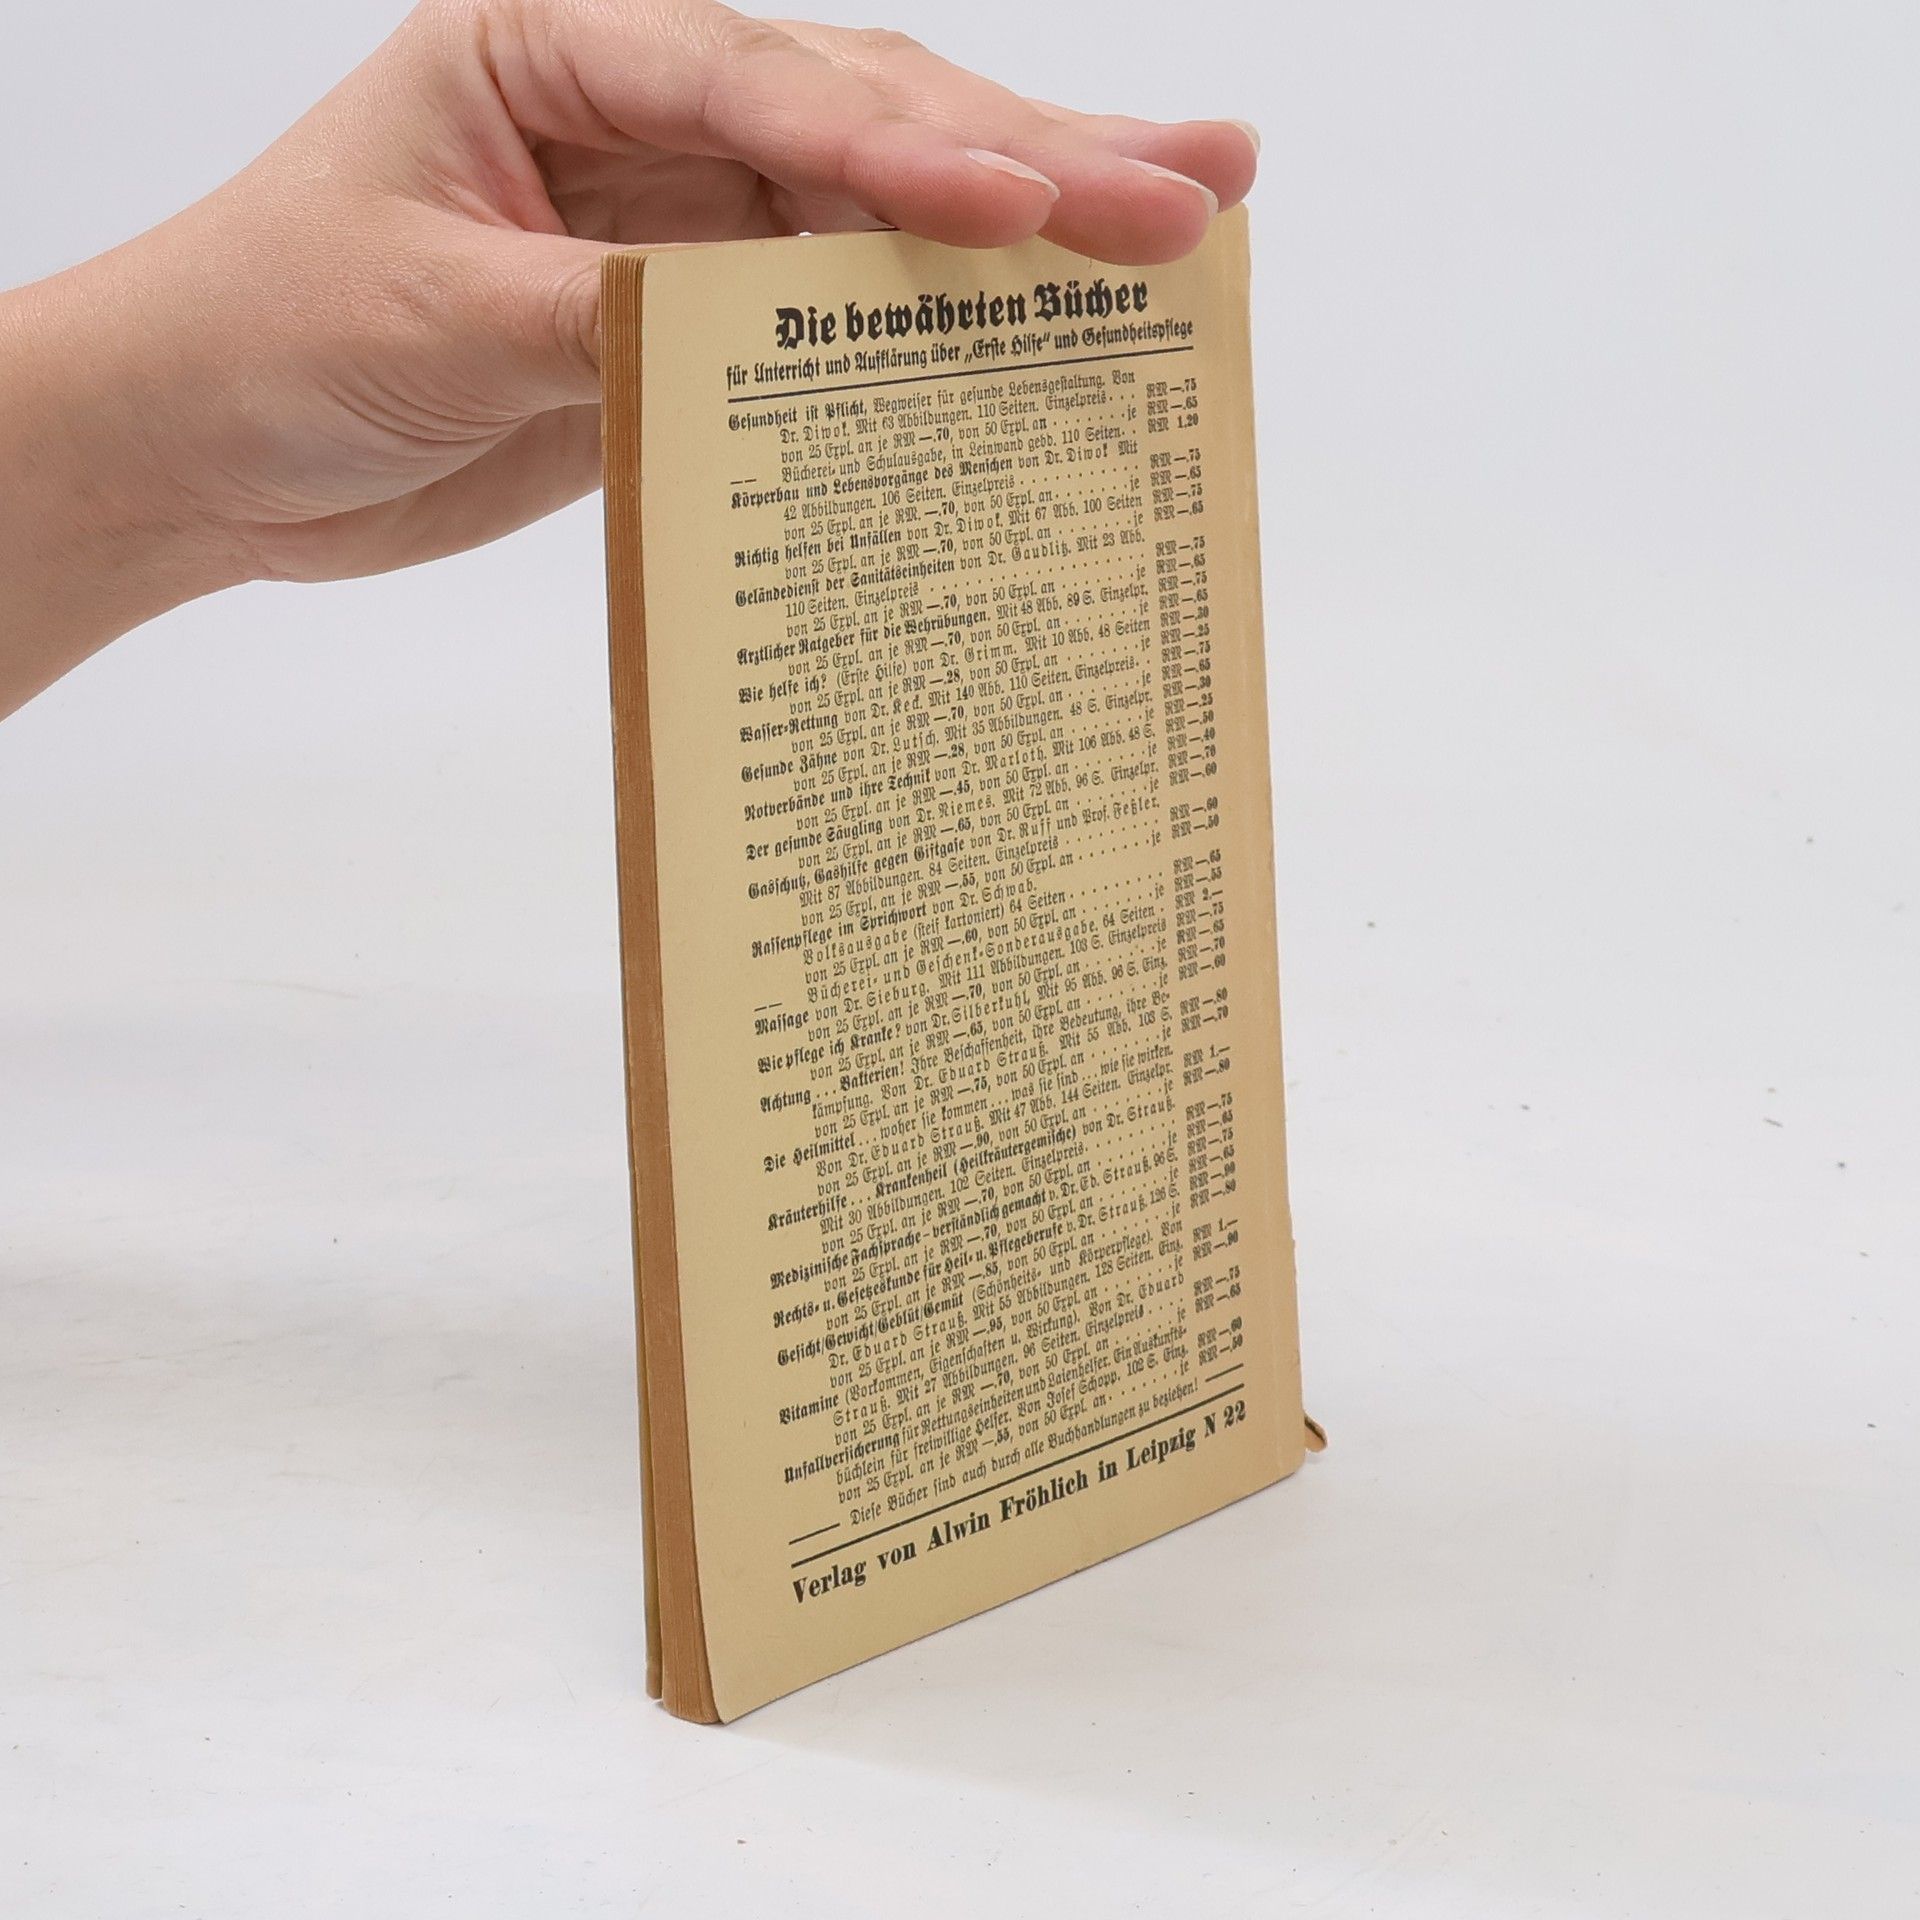 Die bewährten Bücher
für Unterricht und Aufklärung über „Erste Hilfe" und Gesundheitspflege
Gesundheit ist Pflicht, Wegweiser für gesunde Lebensgestaltung. Von
Dr. Diwok. Mit 63 Abbildungen. 110 Seiten. Einzelpreis . . . RM —.75
von 25 Expl. an je RM —.70, von 50 Expl. an . . . . . . . je RM —.65
—— Bücherei- und Schulausgabe, in Leinwand gebd. 110 Seiten. . RM 1.20
Körperbau und Lebensvorgänge des Menschen von Dr. Diwok Mit
42 Abbildungen. 106 Seiten. Einzelpreis . . . . . . . . . . . RM —.75
von 25 Expl. an je RM. —.70, von 50 Expl. an . . . . . . . je RM —.65
Richtig helfen bei Unfällen von Dr. Diwok. Mit 67 Abb. 100 Seiten RM —.75
von 25 Expl. an je RM —.70, von 50 Expl. an . . . . . . . je RM —.65
Geländedienst der Sanitätseinheiten von Dr. Gaudlitz. Mit 23 Abb.
110 Seiten. Einzelpreis . . . . . . . . . . . . . . . . . RM —.75
von 25 Expl. an je RM —.70, von 50 Expl. an . . . . . . . je RM —.65
Ärztlicher Ratgeber für die Wehrübungen. Mit 48 Abb. 89 S. Einzelpr. RM —.75
von 25 Expl. an je RM —.70, von 50 Expl. an . . . . . . . je RM —.65
Wie helfe ich? (Erste Hilfe) von Dr. Grimm. Mit 10 Abb. 48 Seiten RM —.30
von 25 Expl. an je RM —.28, von 50 Expl. an . . . . . . . je RM —.25
Wasser-Rettung von Dr. Keck. Mit 140 Abb. 110 Seiten. Einzelpreis. . RM —.75
von 25 Expl. an je RM —.70, von 50 Expl. an . . . . . . . je RM —.65
Gesunde Zähne von Dr. Lutsch. Mit 35 Abbildungen. 48 S. Einzelpr. RM —.30
von 25 Expl. an je RM —.28, von 50 Expl. an . . . . . . . je RM —.25
Notverbände und ihre Technik von Dr. Marloth. Mit 106 Abb. 48 S. RM —.50
von 25 Expl. an je RM —.45, von 50 Expl. an . . . . . . . je RM —.40
Der gesunde Säugling von Dr. Niemes. Mit 72 Abb. 96 S. Einzelpr. RM —.70
von 25 Expl. an je RM —.65, von 50 Expl. an . . . . . . . je RM —.60
Gasschutz, Gashilfe gegen Giftgase von Dr. Ruff und Prof. Feßler.
Mit 87 Abbildungen. 84 Seiten. Einzelpreis . . . . . . . . . RM —.60
von 25 Expl. an je RM —.55, von 50 Expl. an . . . . . . . je RM —.50
Rassenpflege im Sprichwort von Dr. Schwab.
Volksausgabe (steif kartoniert) 64 Seiten . . . . . . . . . RM —.65
von 25 Expl. an je RM —.60, von 50 Expl. an . . . . . . . je RM —.55
—— Bücherei- und Geschenk-Sonderausgabe. 64 Seiten . RM 2.—
Massage von Dr. Sieburg. Mit 111 Abbildungen. 103 S. Einzelpreis RM —.75
von 25 Expl. an je RM —.70, von 50 Expl. an . . . . . . . je RM —.65
Wie pflege ich Kranke? von Dr. Silberkuhl. Mit 95 Abb. 96 S. Einz. RM —.70
von 25 Expl. an je RM —.65, von 50 Expl. an . . . . . . . je RM —.60
Achtung . . . Bakterien! Ihre Beschaffenheit, ihre Bedeutung, ihre Be-
kämpfung. Von Dr. Eduard Strauß. Mit 55 Abb. 103 S. RM —.80
von 25 Expl. an je RM —.75, von 50 Expl. an . . . . . . . je RM —.70
Die Heilmittel . . . woher sie kommen . . . was sie sind . . . wie sie wirken.
Von Dr. Eduard Strauß. Mit 47 Abb. 144 Seiten. Einzelpr. RM 1.—
von 25 Expl. an je RM —.90, von 50 Expl. an . . . . . . . je RM —.80
Kräuterhilfe . . . Krankenheil (Heilkräutergemische) von Dr. Strauß.
Mit 30 Abbildungen. 102 Seiten. Einzelpreis. . . . . . . . . RM —.75
von 25 Expl. an je RM —.70, von 50 Expl. an . . . . . . . je RM —.65
Medizinische Fachsprache - verständlich gemacht v. Dr. Ed. Strauß. 96 S. RM —.75
von 25 Expl. an je RM —.70, von 50 Expl. an . . . . . . . je RM —.65
Rechts- u. Gesetzeskunde für Heil- u. Pflegeberufe v. Dr. Strauß. 126 S. RM —.90
von 25 Expl. an je RM —.85, von 50 Expl. an . . . . . . . je RM —.80
Gesicht/Gewicht/Geblüt/Gemüt (Schönheits- und Körperpflege). Von
Dr. Eduard Strauß. Mit 55 Abbildungen. 128 Seiten. Einz. RM 1.—
von 25 Expl. an je RM —.95, von 50 Expl. an . . . . . . . je RM —.90
Vitamine (Vorkommen, Eigenschaften u. Wirkung). Von Dr. Eduard
Strauß. Mit 27 Abbildungen. 96 Seiten. Einzelpreis . . . . RM —.75
von 25 Expl. an je RM —.70, von 50 Expl. an . . . . . . . je RM —.65
Unfallversicherung für Rettungseinheiten und Laienhelfer. Ein Auskunfts-
büchlein für freiwillige Helfer. Von Josef Schopp. 102 S. Einz. RM —.60
von 25 Expl. an je RM —.55, von 50 Expl. an . . . . . . . je RM —.50
Diese Bücher sind auch durch alle Buchhandlungen zu beziehen!
Verlag von Alwin Fröhlich in Leipzig N 22